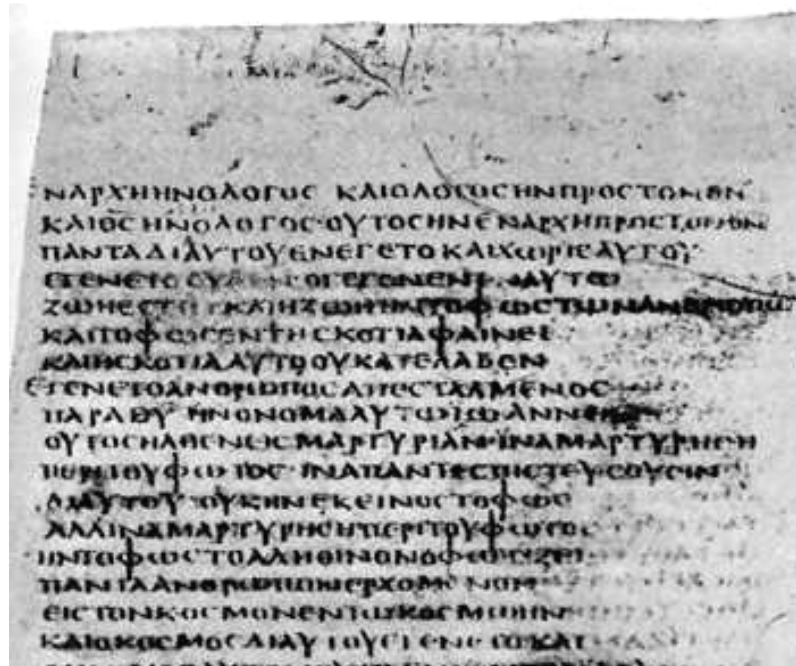 ΕΝΑΡΧΗΗΝΟΛΟΓΟC ΚΑΙΟΛΟΓΟCΗΝΠΡΟCΤΟΝΘΝ
ΚΑΙΘCΗΝΟΛΟΓΟC·ΟΥΤΟCΗΝΕΝΑΡΧΗΠΡΟCΤΟΝΘΝ
ΠΑΝΤΑΔΙΑΥΤΟΥΕΝΕΓΕΤΟΚΑΙΧΩΡΙCΑΥΤΟΥ
ΕΓΕΝΕΤΟΟΥΔΕΝ ΟΓΕΓΟΝΕΝΕΝΑΥΤΩ
ΖΩΗΕCΤΙΝ ΚΑΙΗΖΩΗΗΝΤΟΦΩCΤΩΝΑΝΘΡΩΠΩΝ
ΚΑΙΤΟΦΩCΕΝΤΗCΚΟΤΙΑΦΑΙΝΕΙ
ΚΑΙΗCΚΟΤΙΑΑΥΤΟΟΥΚΑΤΕΛΑΒΟΝ
ΕΓΕΝΕΤΟΑΝΘΡΩΠΟCΑΠΕCΤΑΛΜΕΝΟC
ΠΑΡΑΘΥ ΗΝΟΝΟΜΑΑΥΤΩΙΩΑΝΝΗΝ
ΟΥΤΟCΗΛΘΕΝΕΙCΜΑΡΤΥΡΙΑΝ·ΙΝΑΜΑΡΤΥΡΗCΗ
ΠΕΡΙΤΟΥΦΩΤΟC ΙΝΑΠΑΝΤΕCΠΙCΤΕΥCΟΥCΙΝ
ΔΙΑΥΤΟΥ ΟΥΚΗΝΕΚΕΙΝΟCΤΟΦΩC
ΑΛΛΙΝΑΜΑΡΤΥΡΗCΗΠΕΡΙΤΟΥΦΩΤΟC
ΗΝΤΟΦΩCΤΟΑΛΗΘΙΝΟΝΟΦΩΤΙΖΕΙ
ΠΑΝΤΑΑΝΘΡΩΠΟΝΕΡΧΟΜΕΝΟΝ
ΕΙCΤΟΝΚΟCΜΟΝΕΝΤΩΚΟCΜΩΗΝ
ΚΑΙΟΚΟCΜΟCΔΙΑΥΤΟΥΕΓΕΝΕΤΟΚΑΙ